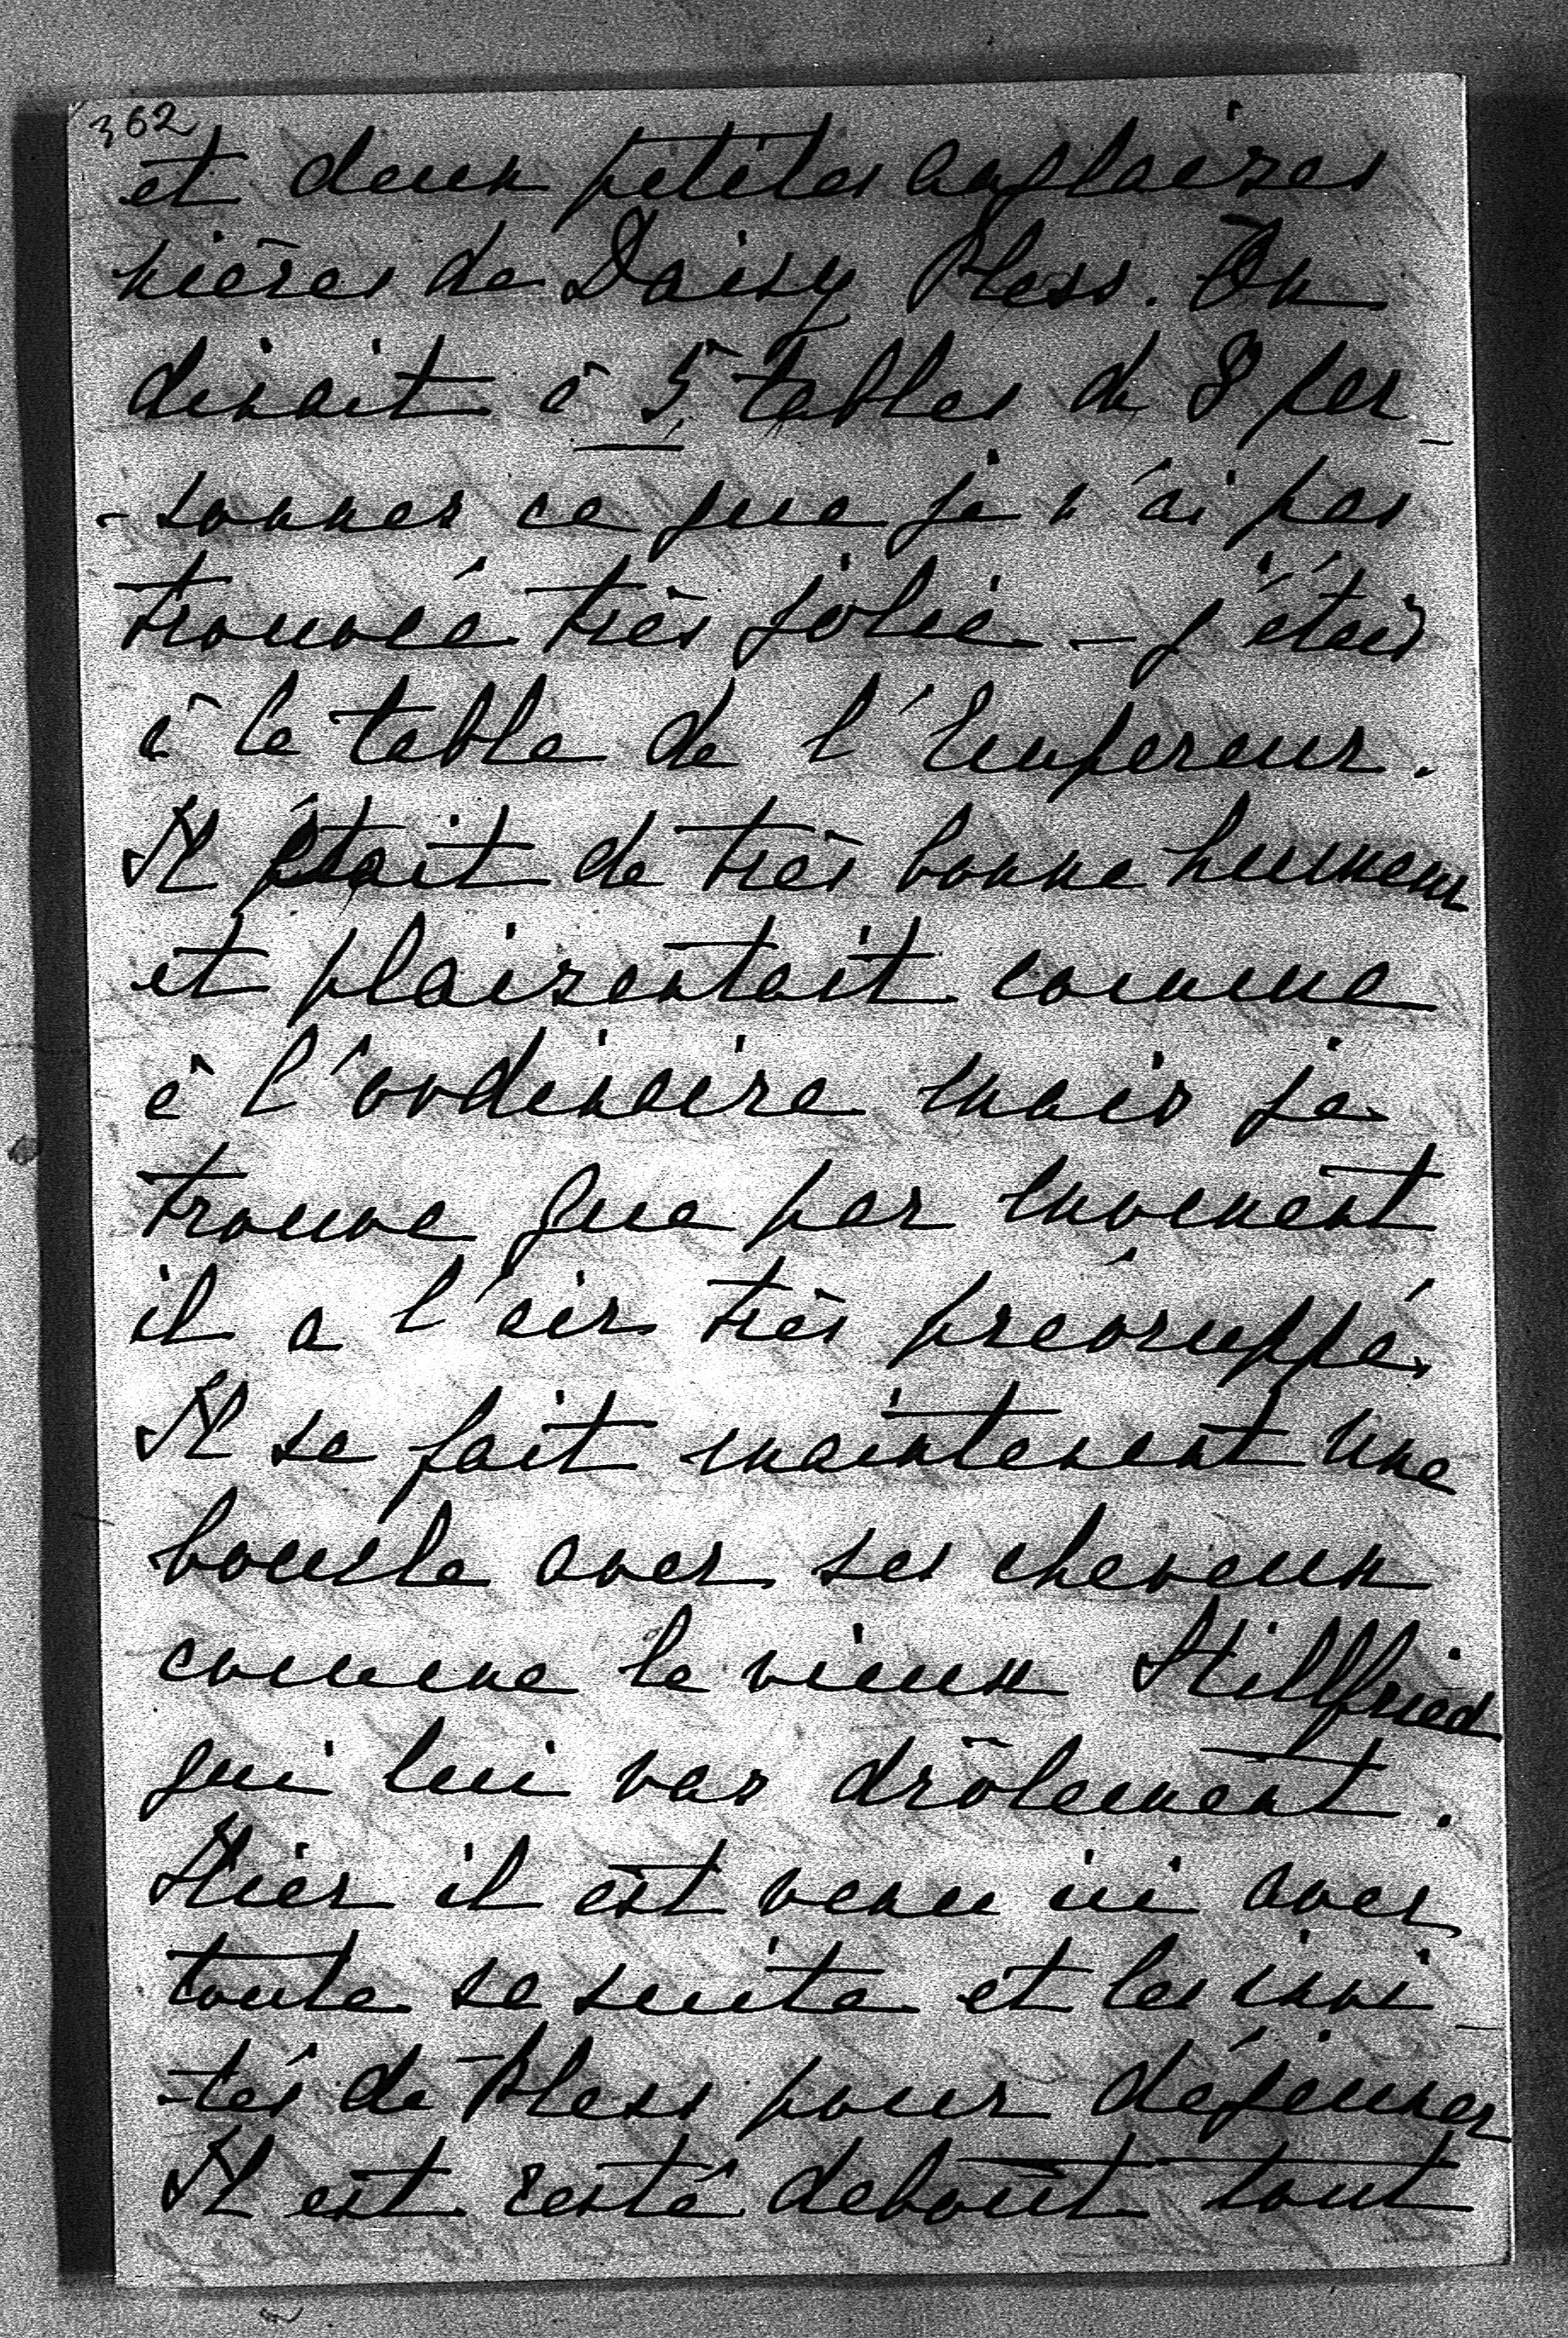 362
et deux petites anglaises
nièces de Daisy Pless. On
dinait à 5 tables de 8 per-
-sonnes ce que je n'ai pas
trouvé très jolie - j'étais
à la table de l'Empereur.
Il était de très bonne humeur
et plaisentait comme
à l'ordinaire mais je
trouve que par moment
il a l'air très preoccuppé.
Il se fait maintenant une
boucle avec ses cheveux
comme le vieux Stillfried
qui lui vas drôlement.
Hier il est venu ici avec
toute sa suite et les invi-
-tés de Pless pour déjeuner
Il est resté debout tout